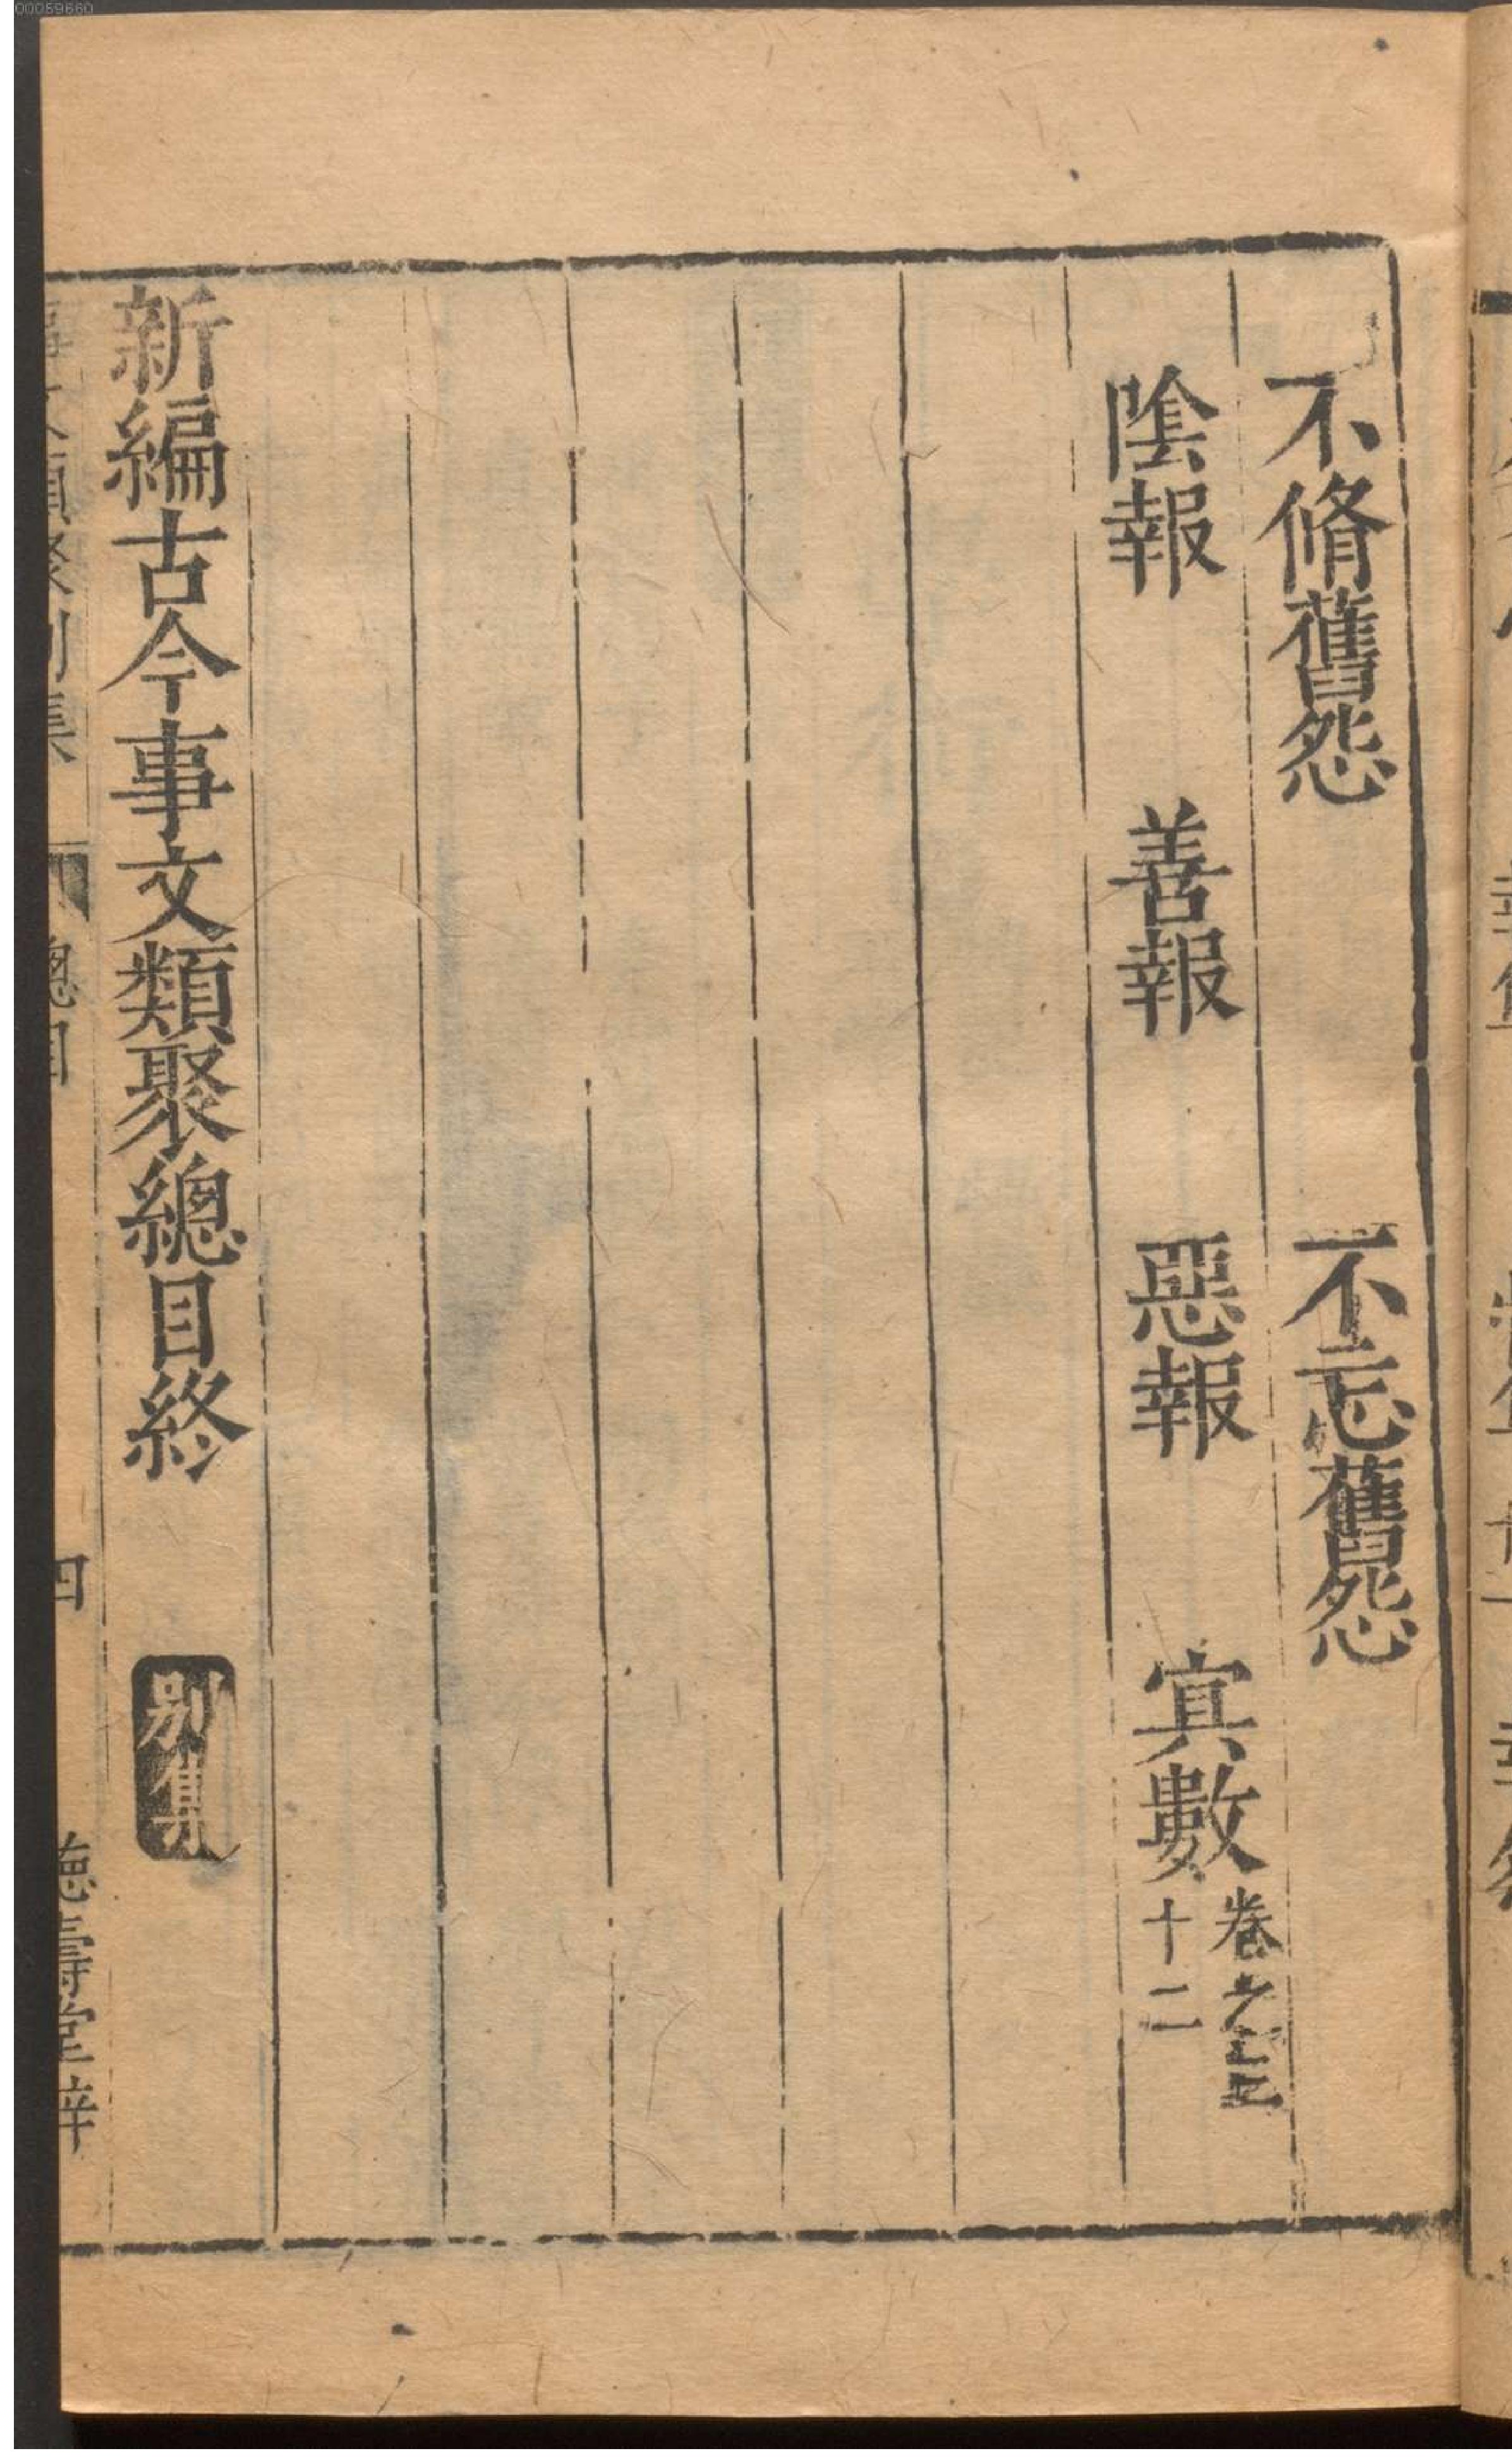 不脩舊怨 不忘舊怨
陰報 善報 惡報 寘數 卷之三十二
新編古今事文類聚總目終 别集
總目 四 德壽堂梓
00059660